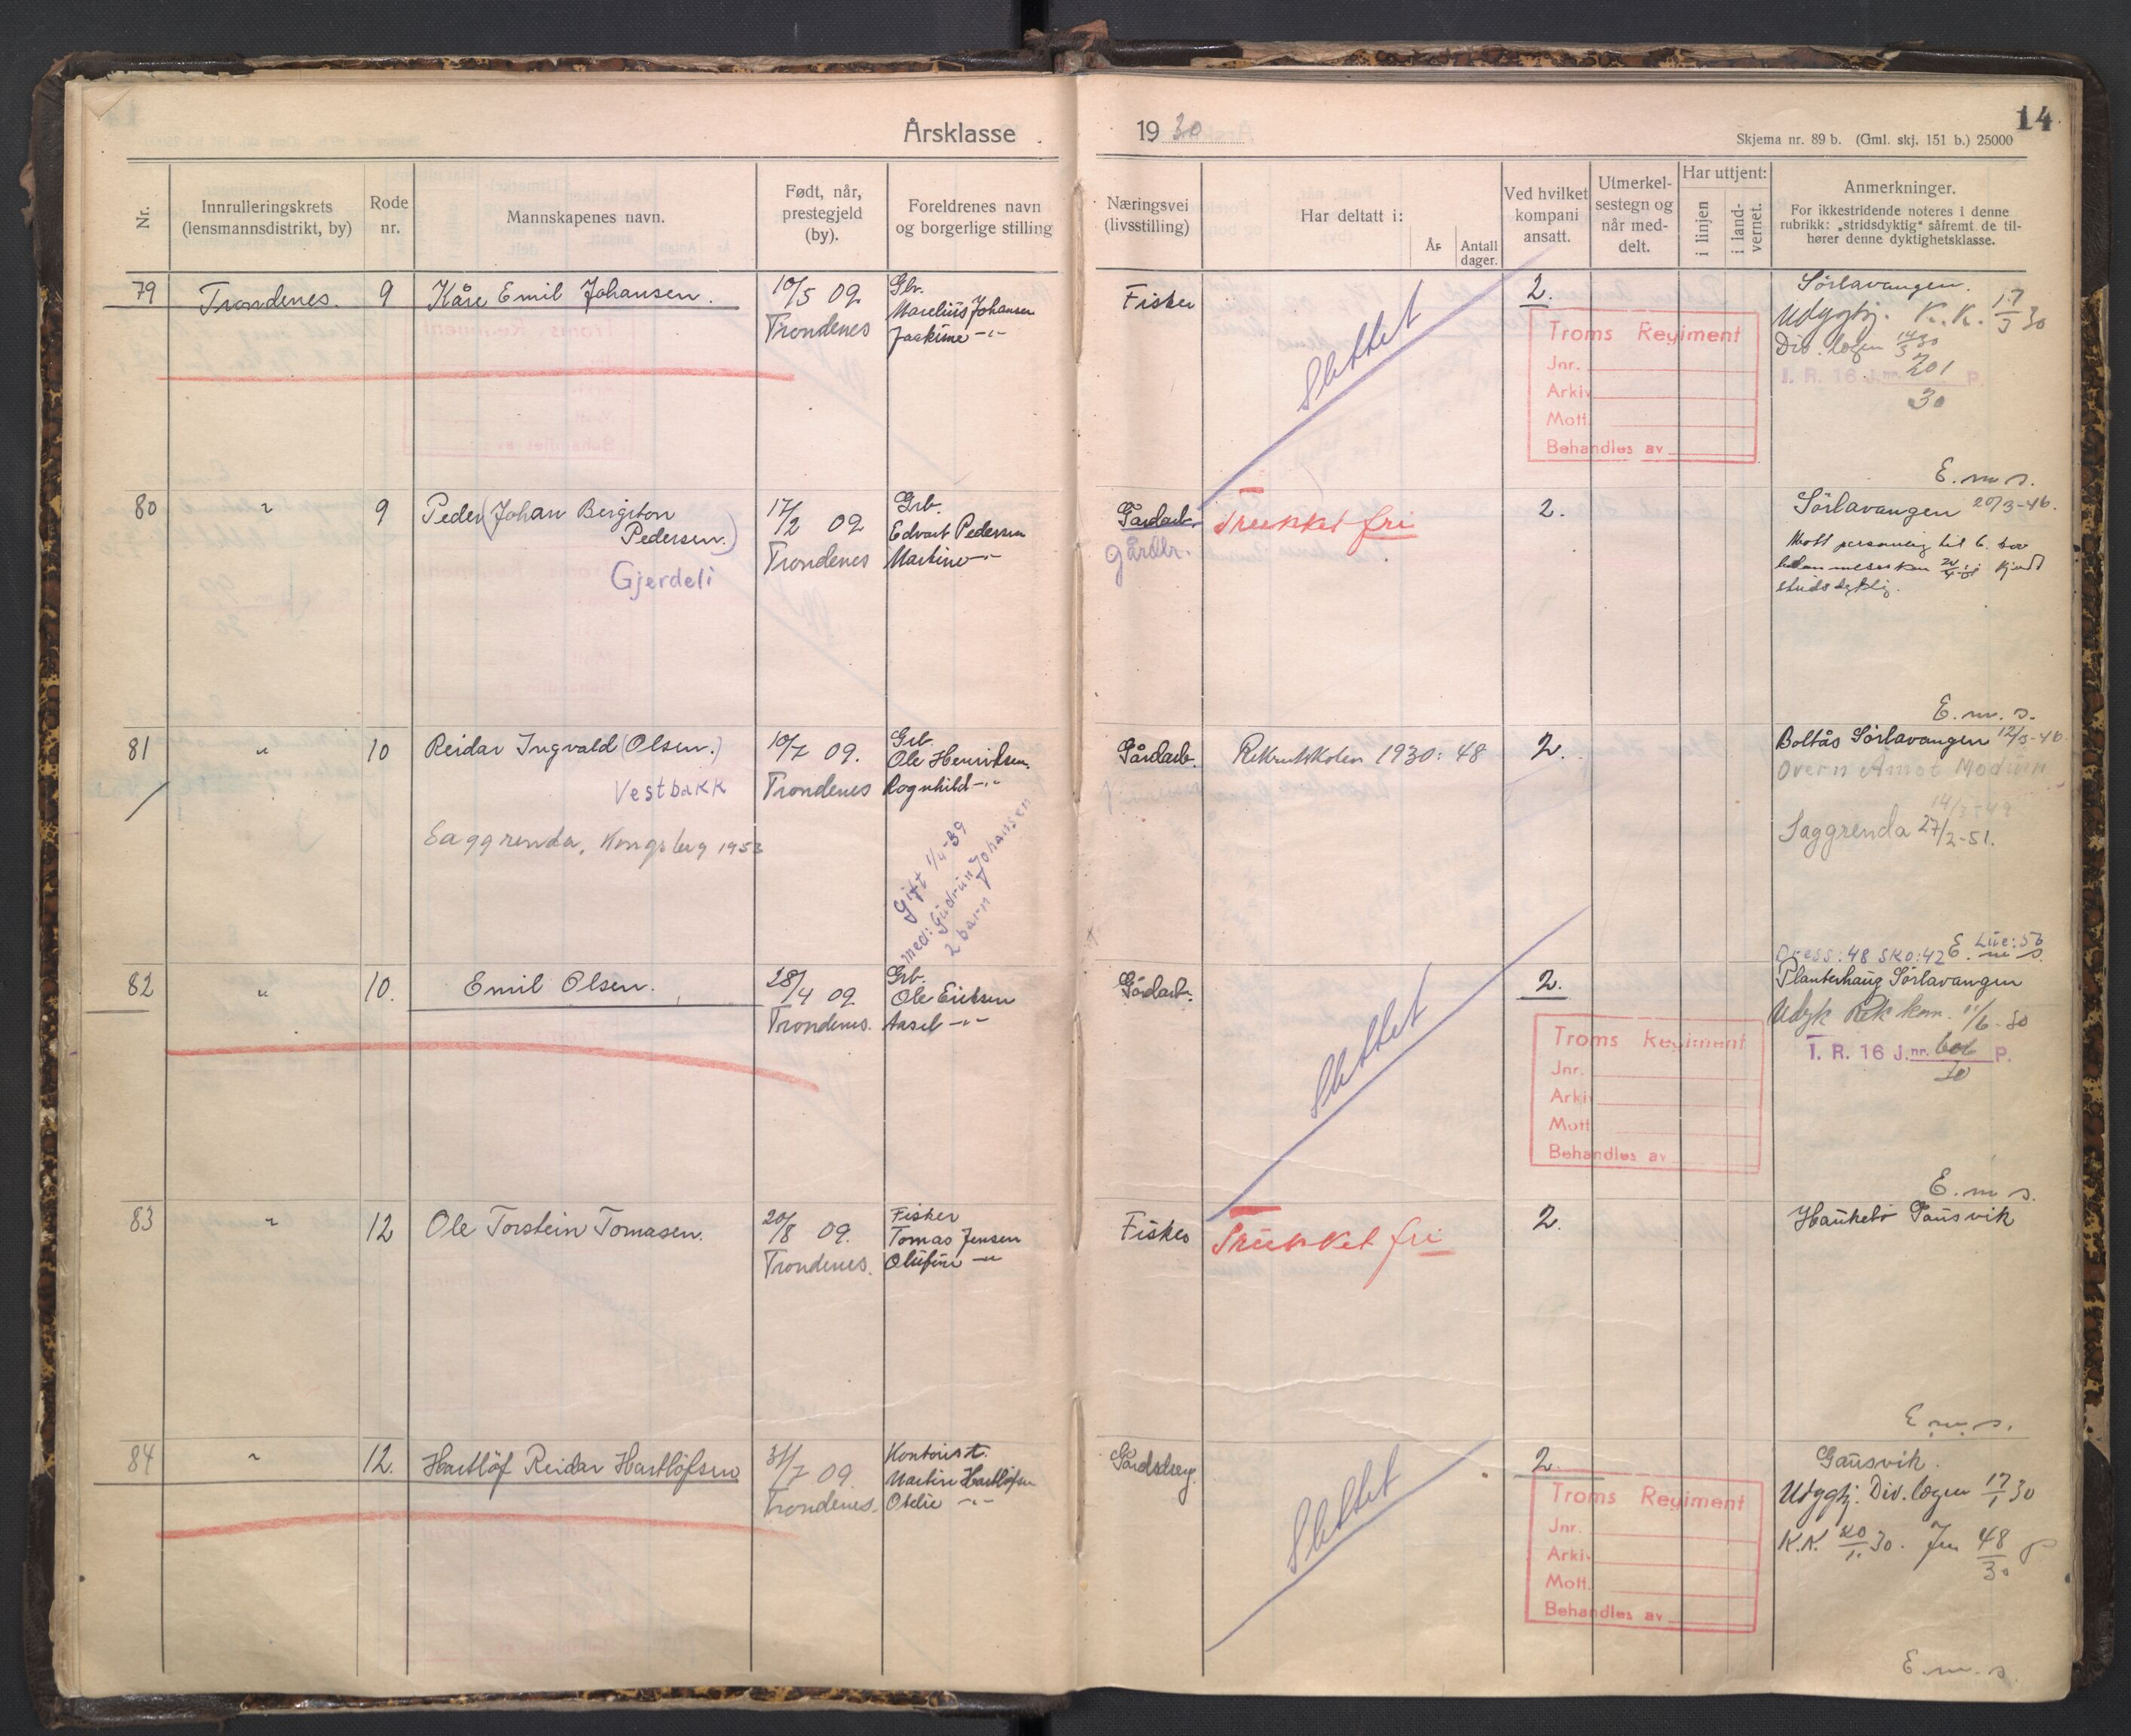 14
Årsklasse 1930
Skjema nr. 89 b. (Gml. skj. 151 b.) 25000
Nr.
Innrulleringskrets
(lensmannsdistrikt, by)
Rode
nr.
Mannskapenes navn.
Født, når,
prestegjeld
(by).
Foreldrenes navn
og borgerlige stilling
Næringsvei
(livsstilling)
Har deltatt i:
År
Antall
dager.
Ved hvilket
kompani
ansatt.
Utmerkel-
sestegn og
når med-
delt.
Har uttjent:
i linjen
i land-
vernet.
Anmerkninger.
For ikkestridende noteres i denne
rubrikk: „stridsdyktig“ såfremt de til-
hører denne dyktighetsklasse.
79 Trondenes. 9 Kåre Emil Johansen.
10/5 09
Trondenes
Gbr.
Marelius Johansen
Joakime -"-
Fisker
Slettet
2.
Troms Regiment
Jnr.
Arkiv
Mott.
Behandles av
Sörlavangen.
Udygtj. K.K. 17/3 30
Div. legen 14/3 30
I. R. 16 J.nr. 201 P.
30
E.m.s.
80 " 9 Peder (Johan Bergiton
Pedersen.)
Gjerdeli
17/2 09
Trondenes
Grb.
Edvart Pedersen
Martine -"-
Gårdarb.
gårdbr.
Trukket fri
2.
Sörlavangen 20/3-46.
Mött personlig til
stridsdyktig.
E.m.s.
81 " 10 Reidar Ingvald (Olsen.)
Vestbakk
Saggrenda, Kongsberg 1953
10/7 09.
Trondenes
Grb.
Ole Henriksen.
Ragnhild -"-
Gift 1/4-39
med: Gudrun Johansen
2 barn
Gårdarb.
Rekruttskolen 1930: 48
2.
Boltås Sörlavangen 12/3-46
Overn Åmot Modum
14/3-49
Saggrenda 27/2-51.
Dress: 48 Sko: 42 Lue: 56
E.m.s.
82 " 10. Emil Olsen.
28/4 09
Trondenes.
Grb.
Ole Eriksen
Aasel -"-
Gårdarb.
Slettet
2.
Troms Regiment
Jnr.
Arkiv
Mott.
Behandles av
Planterhaug Sörlavangen
Udyk Rek kom. 11/6-30
I. R. 16 J.nr. 606 P.
30
E.m.s.
83 " 12 Ole Torstein Tomasen.
20/8 09.
Trondenes.
Fisker
Tomas Jensen
Olufine -"-
Fisker
Trukket fri
2.
Haukebö Gausvik
E.m.s.
84 " 12. Hartlöf Reidar Hartlöfsen
31/7 09.
Trondenes.
Kontorist.
Martin Hartlöfsen
Otelie -"-
Slettet
2.
Troms Regiment
Jnr.
Arkiv
Mott.
Behandles av
Gausvik.
Udygtj. Div. legen 17/1 30
K.K. 20/1 30. Jnr 48/30 P
E.m.s.